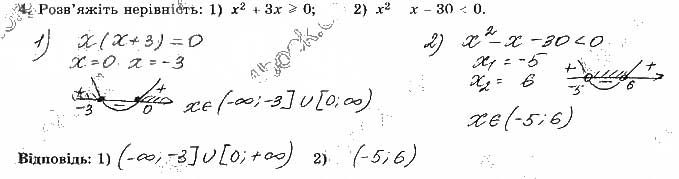 4. Розв'яжіть нерівність: 1) x² + 3x ⩾ 0; 2) x² x – 30 < 0.
1) x(x+3)=0
x=0 x=-3
+ − + -3 0
x∈(-∞;-3]∪[0;∞)
2) x²-x-30<0
x₁ = -5
x₂ = 6
+ − + -5 6
x∈(-5;6)
Відповідь: 1) (-∞;-3]∪[0;+∞) 2) (-5;6)